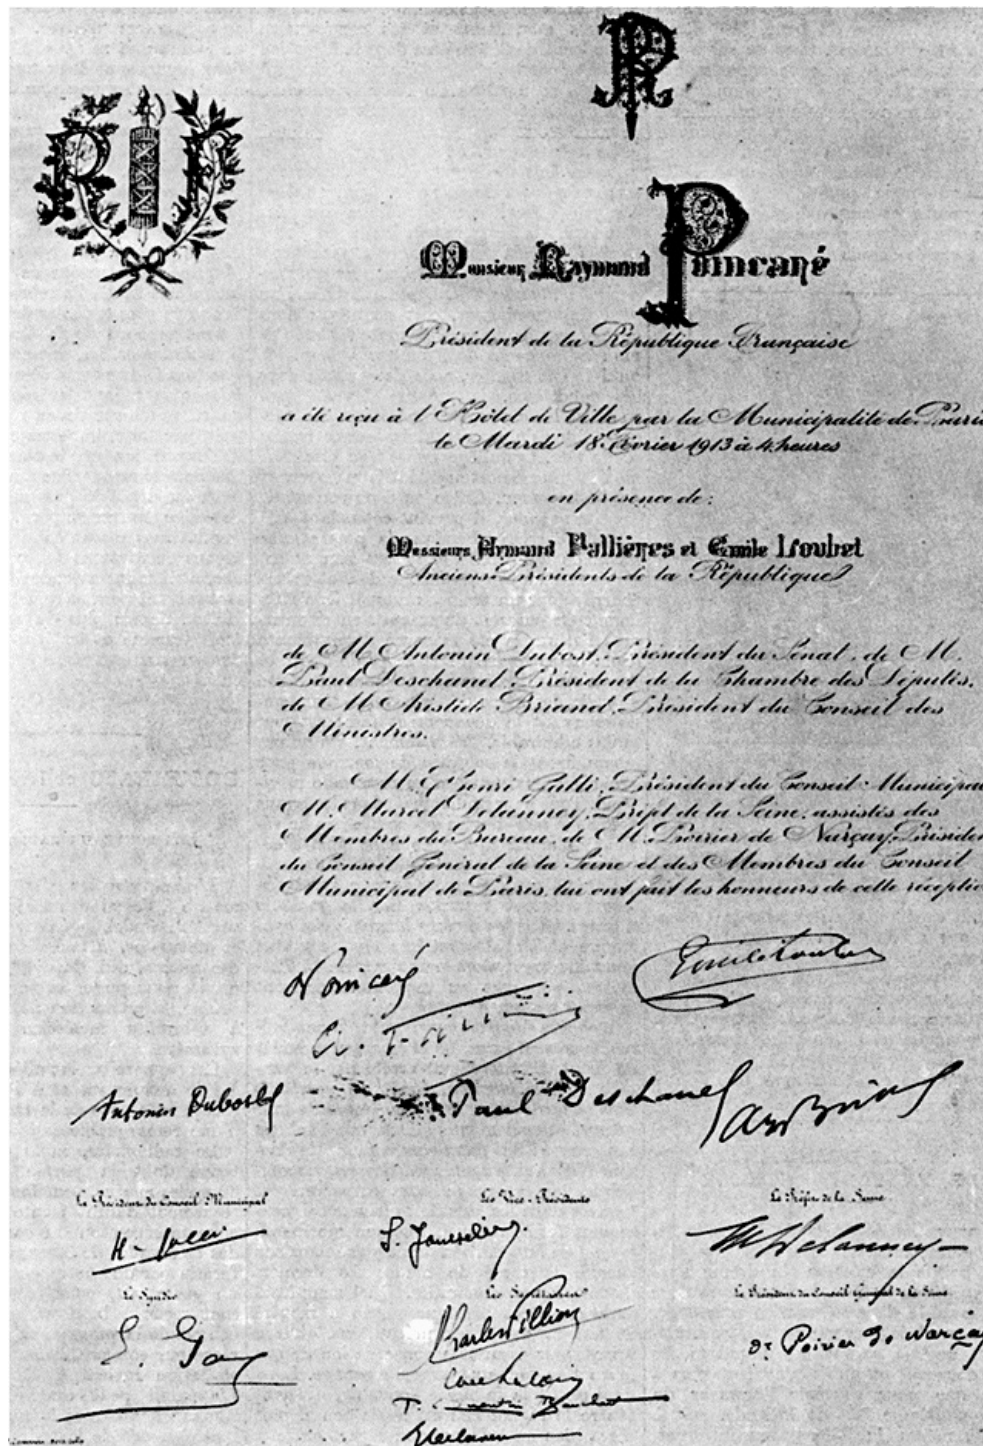 RP
R F
Monsieur Raymond Poincaré
Président de la République Française
a été reçu à l'Hôtel de Ville par la Municipalité de Paris
le Mardi 18 Février 1913 à 4 heures
en présence de:
Messieurs Armand Fallières et Emile Loubet
Anciens Présidents de la République
de M. Antonin Dubost, Président du Sénat, de M.
Paul Deschanel, Président de la Chambre des Députés,
de M. Aristide Briand, Président du Conseil des
Ministres.
M. Henri Galli, Président du Conseil Municipal
M. Marcel Delanney, Préft de la Seine, assistés des
Membres du Bureau, de M. Poirier de Narçay, Président
du Conseil Général de la Seine et des Membres du Conseil
Municipal de Paris, lui ont fait les honneurs de cette réception
Poincaré
Emile Loubet
A. Fallières
Antonin Dubost
Paul Deschanel
Ar Briand
Le Président du Conseil Municipal
Les Vice-Présidents
Le Préfet de la Seine
H. Galli
M Delanney
Le Syndic
Les Secrétaires
Le Président du Conseil Général de la Seine
E. Gay
Charles Fillion
Dr Poirier de Narçay